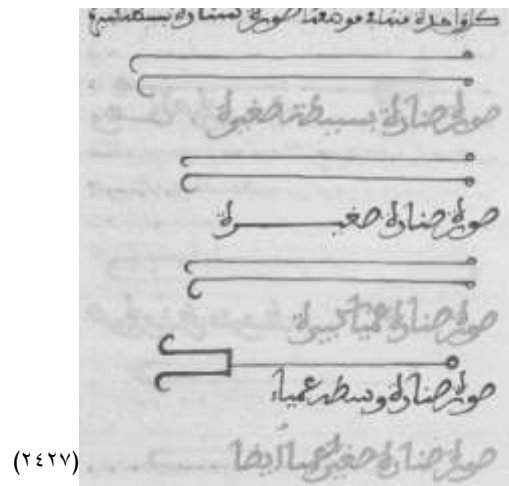 كل واحدة منها صورة
صورة صنارة بسيطة صغيرة
صورة صنارة صغيرة
صورة صنارة عمياء كبيرة
صورة صنارة وسط عمياء
صورة صنارة صغيرة عمياء أيضا
(٢٤٢٧)